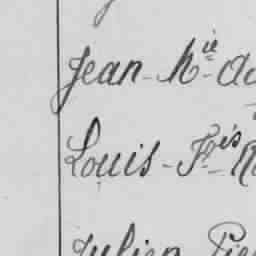 Jean-M^ie-
Louis-F^ois-
Julien Pie